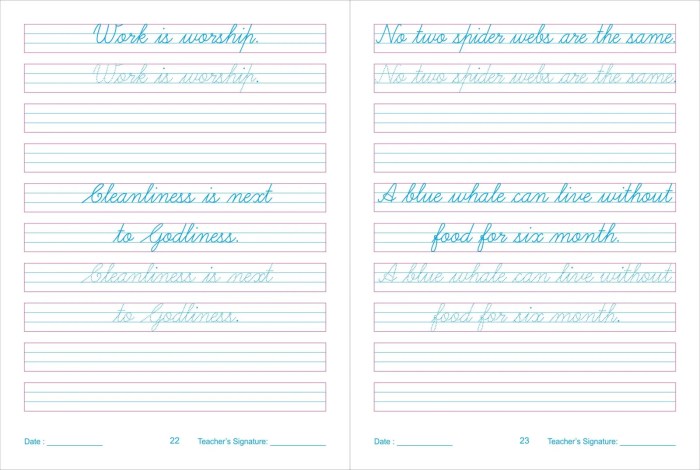 Work is worship.
Work is worship.
Cleanliness is next
to Godliness.
Cleanliness is next
to Godliness.
Date : 22 Teacher's Signature:
No two spider webs are the same.
No two spider webs are the same.
A blue whale can live without
food for six month.
A blue whale can live without
food for six month.
Date : 23 Teacher's Signature: